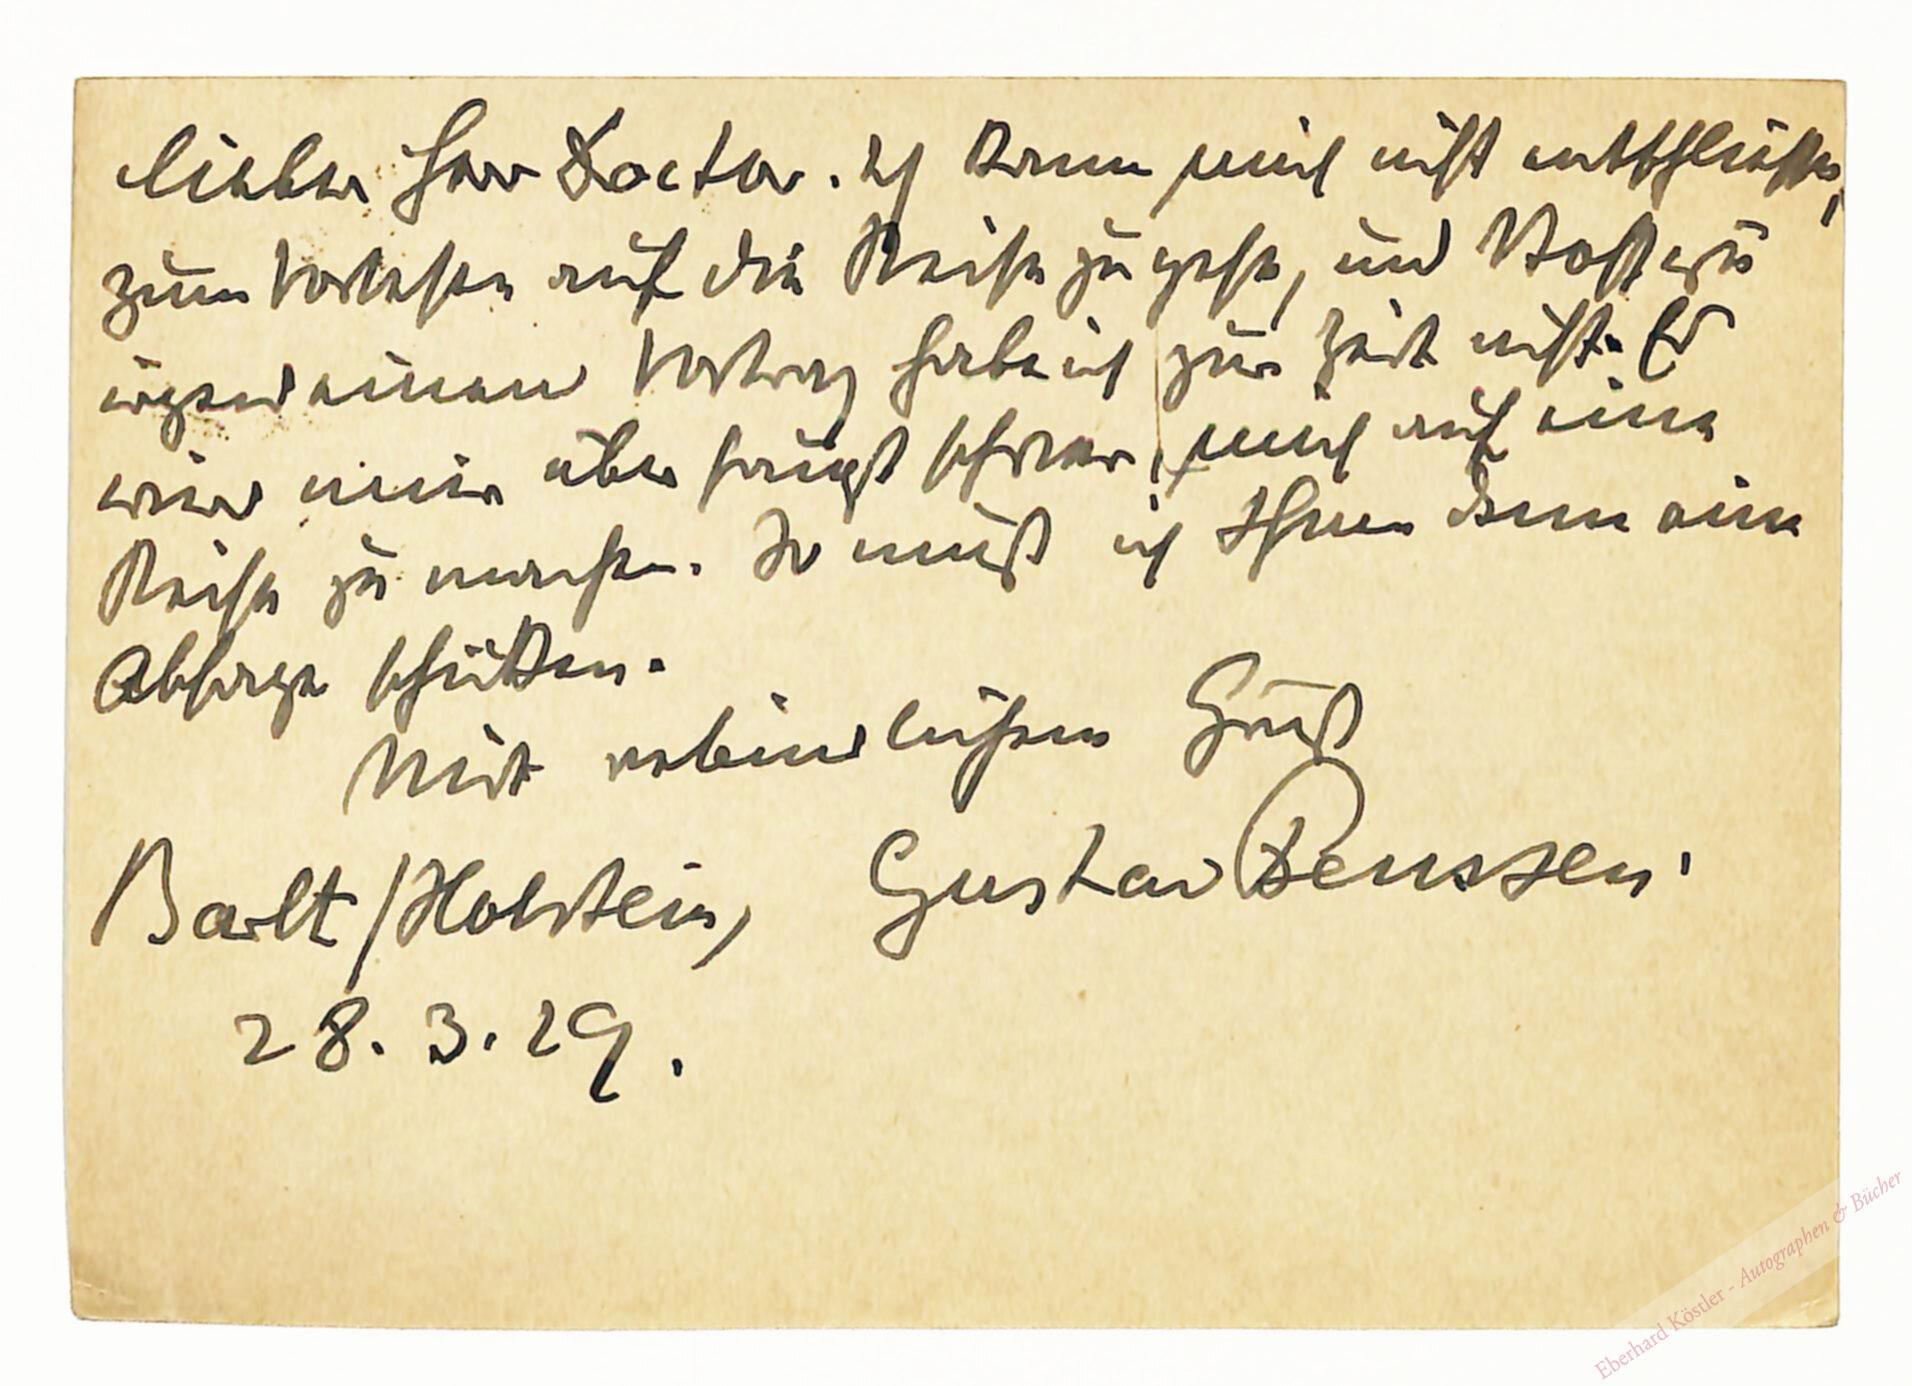 Lieber Herr Doctor. Ich kann mich nicht entschließen,
zum Vorlesen auf die Reise zu gehen, und Stoff zu
irgend einem Vortrag habe ich zur Zeit nicht. Es
wird mir überhaupt schwer, mich auf eine
Reise zu machen. So muß ich Ihnen denn eine
Absage schicken.
Mit verbindlichem Gruß
Barlt/Holstein, Gustav Frenssen.
28. 3. 29.
Eberhard Köstler - Autographen & Bücher